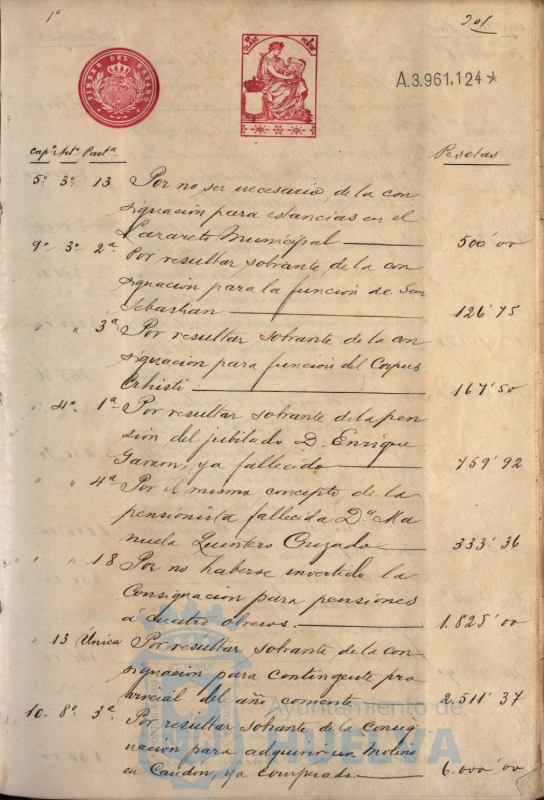 1ª 201
TIMBRE DEL ESTADO
A.3.961,124*
Capº Artº Partª Pesetas
5º 3º 13 Por no ser necesario de la con
signacion para estancias en el
Lazareto Municipal 500'00
9º 3º 2ª Por resultar sobrante de la con
signacion para la funcion de San
Sebastian 126'75
" " 3ª Por resultar sobrante de la con
signacion para funcion del Corpus
Crhisti 167'50
" 4º 1ª Por resultar sobrante de la pen
sion del jubilado D. Enrique
ya fallecido 759'92
" " 4ª Por el mismo concepto de la
pensionista fallecida Dª Ma
nuela Quintero Cruzado 333'36
" " 18 Por no haberse invertido la
Consignacion para pensiones
á cuatro obreros. 1.825'00
" 13 Única Por resultar sobrante de la con
signacion para contingente pro
vincial del año corriente 2.511'37
10. 8º 3ª Por resultar sobrante de la Consig
nacion para adquirir un Molino
en Candón, ya comprado 6.000'00
Ayuntamiento de
HUELVA